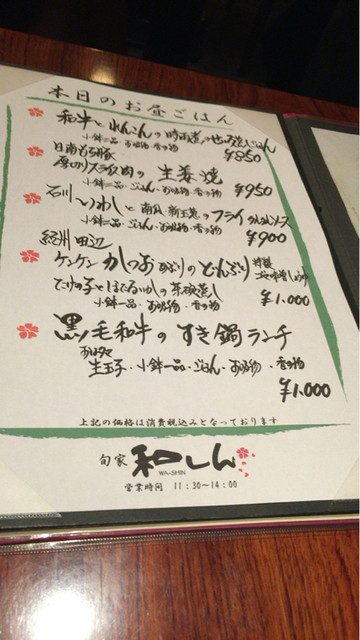 本日のお昼ごはん
和牛とれんこんの時雨煮のせいろ蒸しごはん
小鉢二品・お吸物・香の物 ¥850
日南もち豚
厚切りスライス肉の生姜焼
小鉢二品・ごはん・お吸物・香の物 ¥950
石川 いわしと南瓜、新玉葱のフライ
小鉢二品・ごはん・お吸物・香の物
¥900
紀州田辺
ケンケンかつおあぶりのどんぶり 特製ゴマ味噌しょうゆ
たけの子とほたるいかの茶碗蒸し
小鉢一品・お吸物・香の物 ¥1.000
黒毛和牛のすき鍋ランチ
生玉子・小鉢一品・ごはん・お吸物・香の物
¥1.000
上記の価格は消費税込みとなっております
旬家 和しん
WA-SHIN
営業時間 11:30~14:00